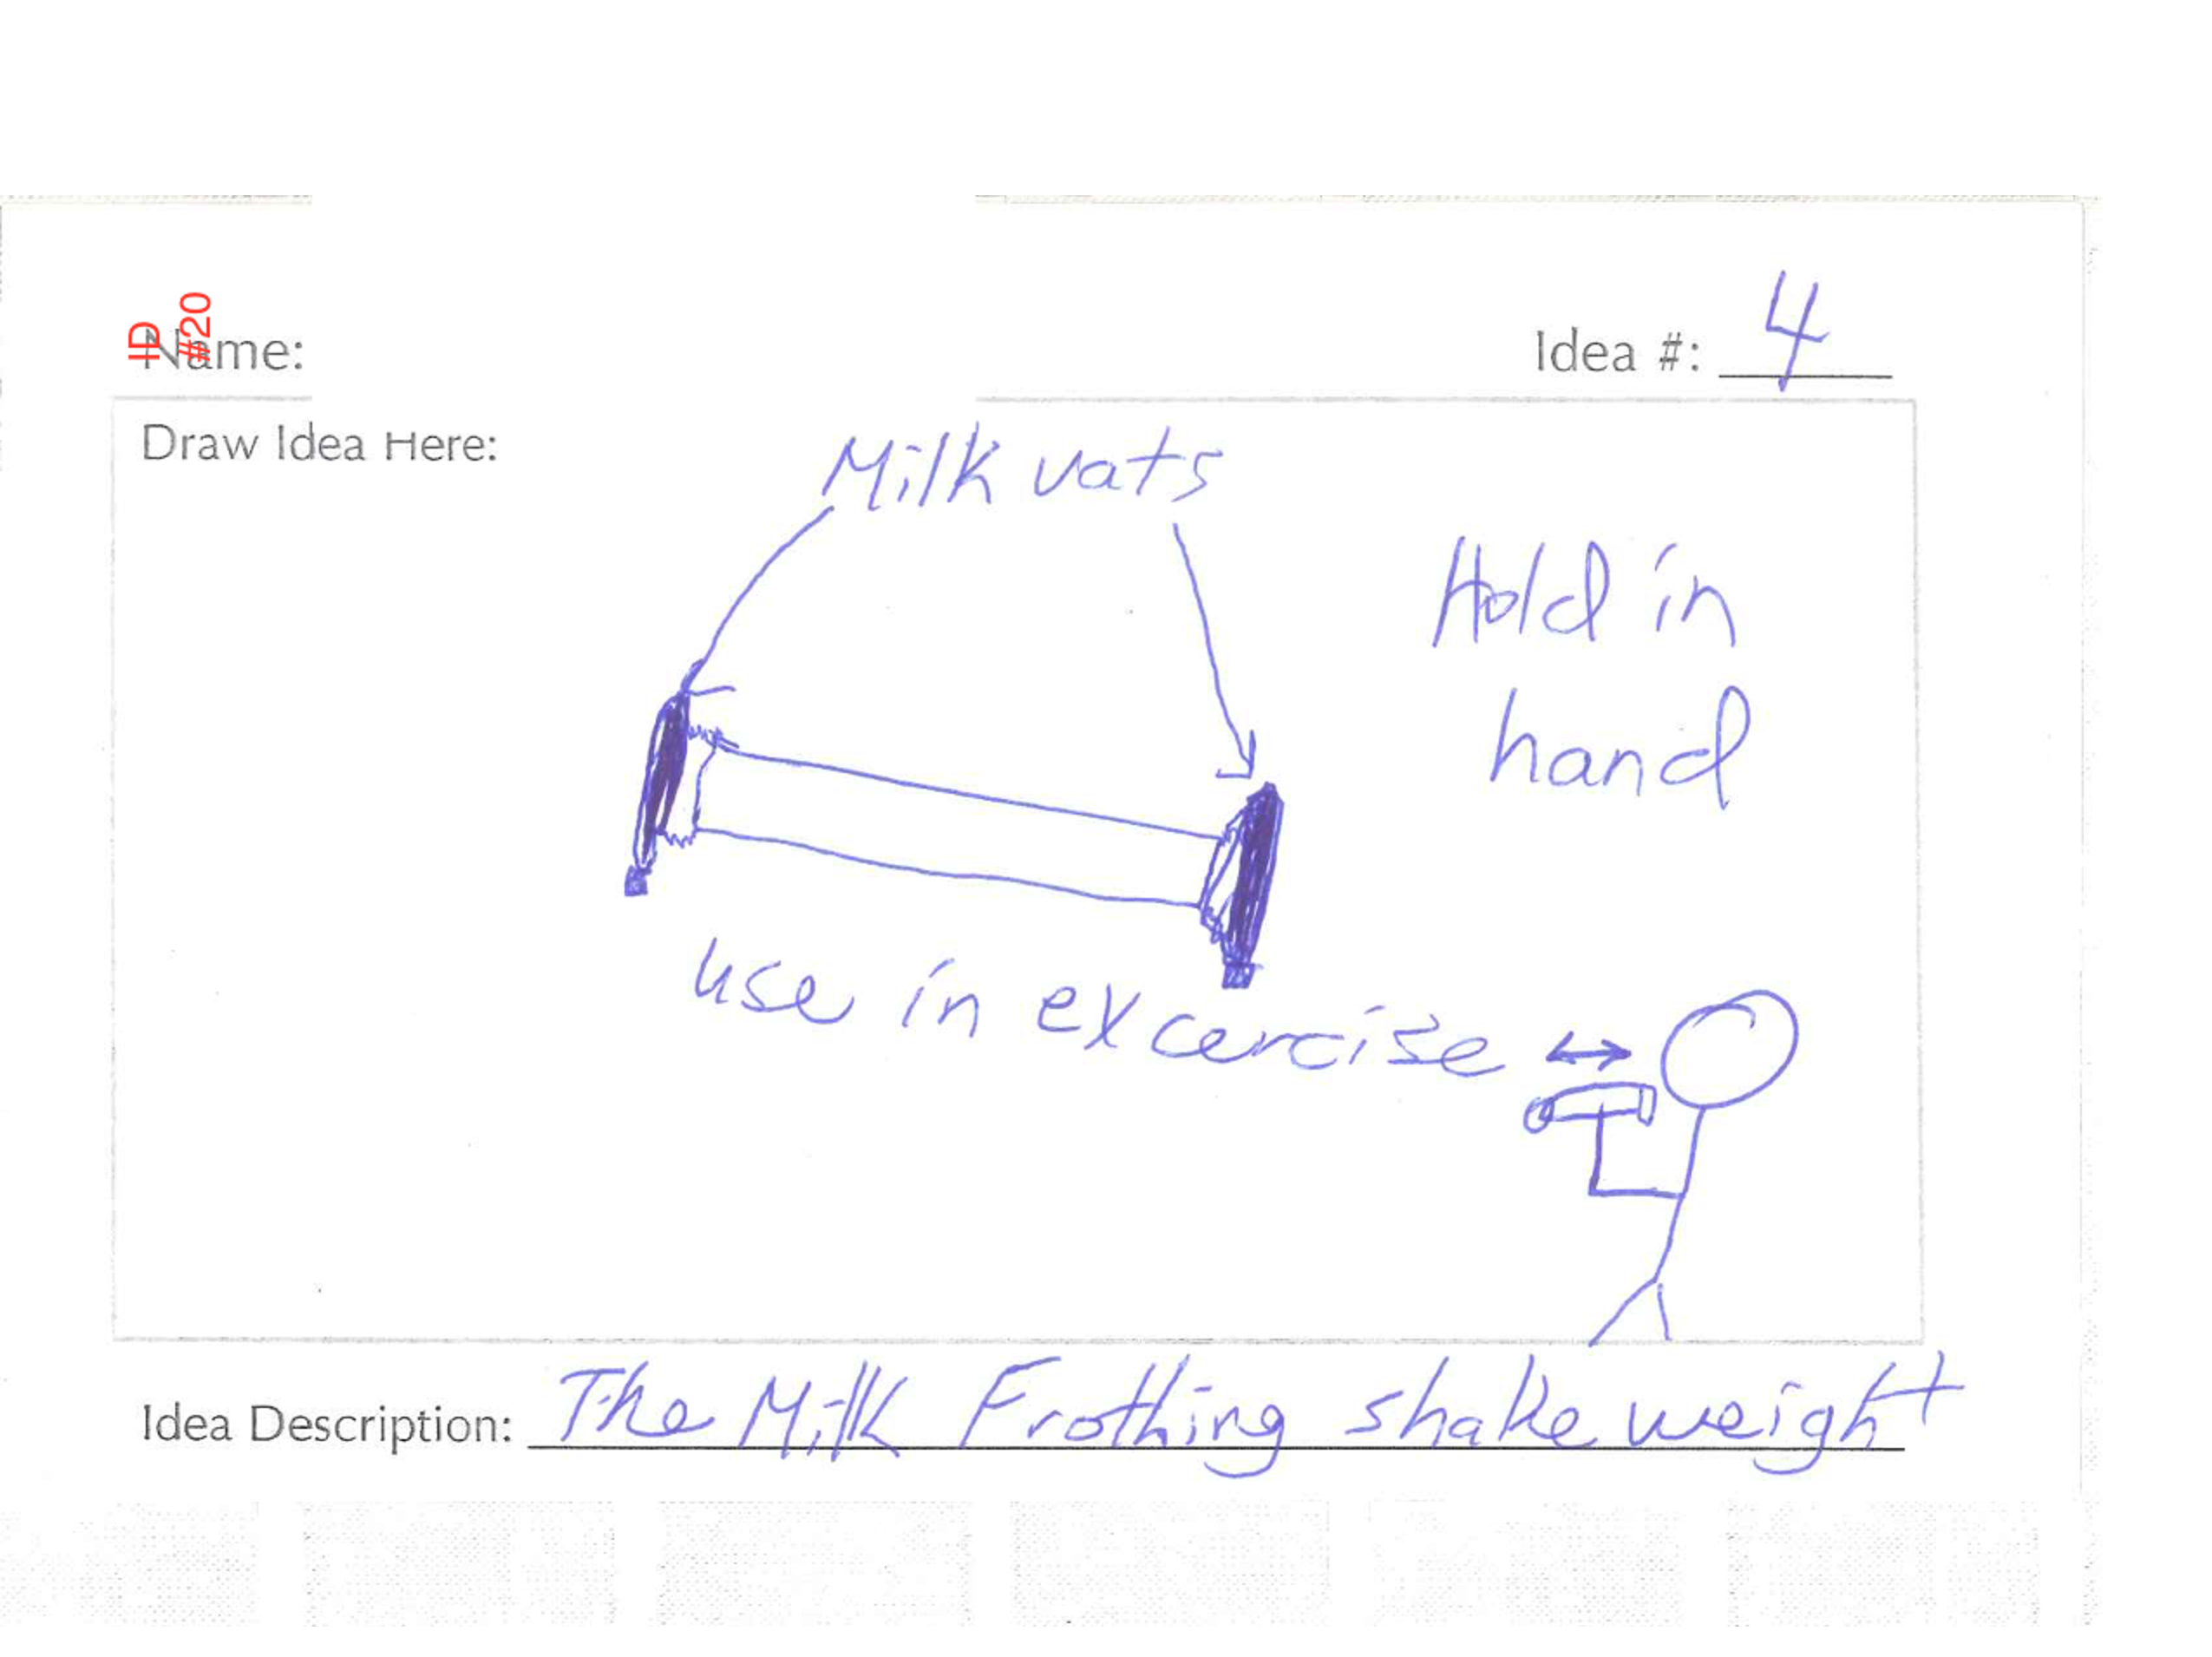 ID
#20
Name:
Idea #: 4
Draw Idea Here:
Milk vats
Hold in
hand
use in excercise
Idea Description: The Milk Frothing shake weight